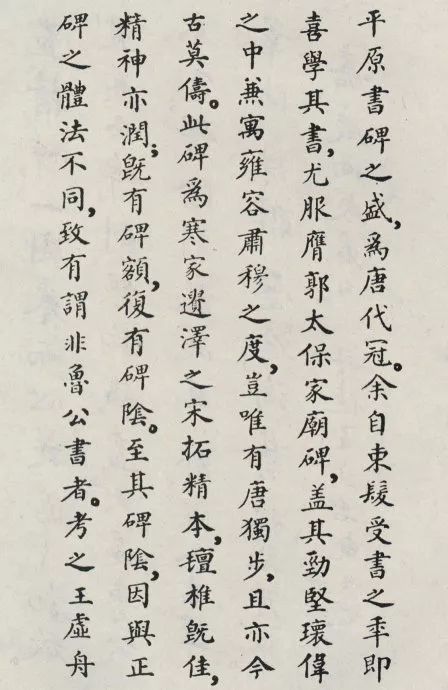 平原書碑之盛，為唐代冠。余自束髮受書之年即
喜學其書，尤服膺郭太保家廟碑，蓋其勁堅瓌偉
之中兼寓雍容肅穆之度，豈唯有唐獨步，且亦今
古莫儔。此碑爲寒家遺澤之宋拓精本，氊椎既佳，
精神亦潤；既有碑額，復有碑陰。至其碑陰，因與正
碑之體法不同，致有謂非魯公書者。考之王虛舟